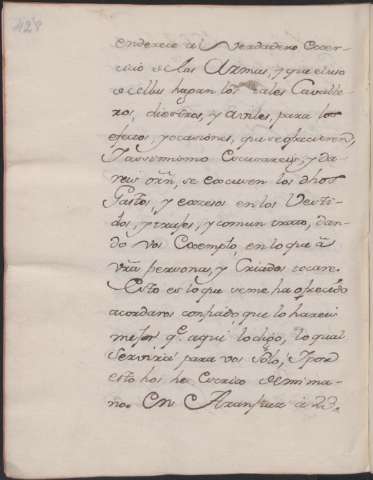 428
enderece al Verdadero Exer-
cicio de las Armas, y que el uso
de ellas hagan los tales Cavalle-
ros, diestros, y aviles, para los
efectos, y ocasiones, que se ofrecieren,
Y assimismo Escusareis, y da-
reis orñ, se escusen los dhos
Gastos, y excesos en los Vesti-
dos, y trajes, y comun trato, dan-
do Vos Exemplo, en lo que á
vrã persona, y Criados tocare.
Esto es lo que se me ha ofrecido
acordaros confiado, que lo hareis
mejor qe aqui lo digo, lo qual
servirá para vos Sólo, Y por
esto hos he Escrito de mi ma-
no. En Aranjuez á 23,